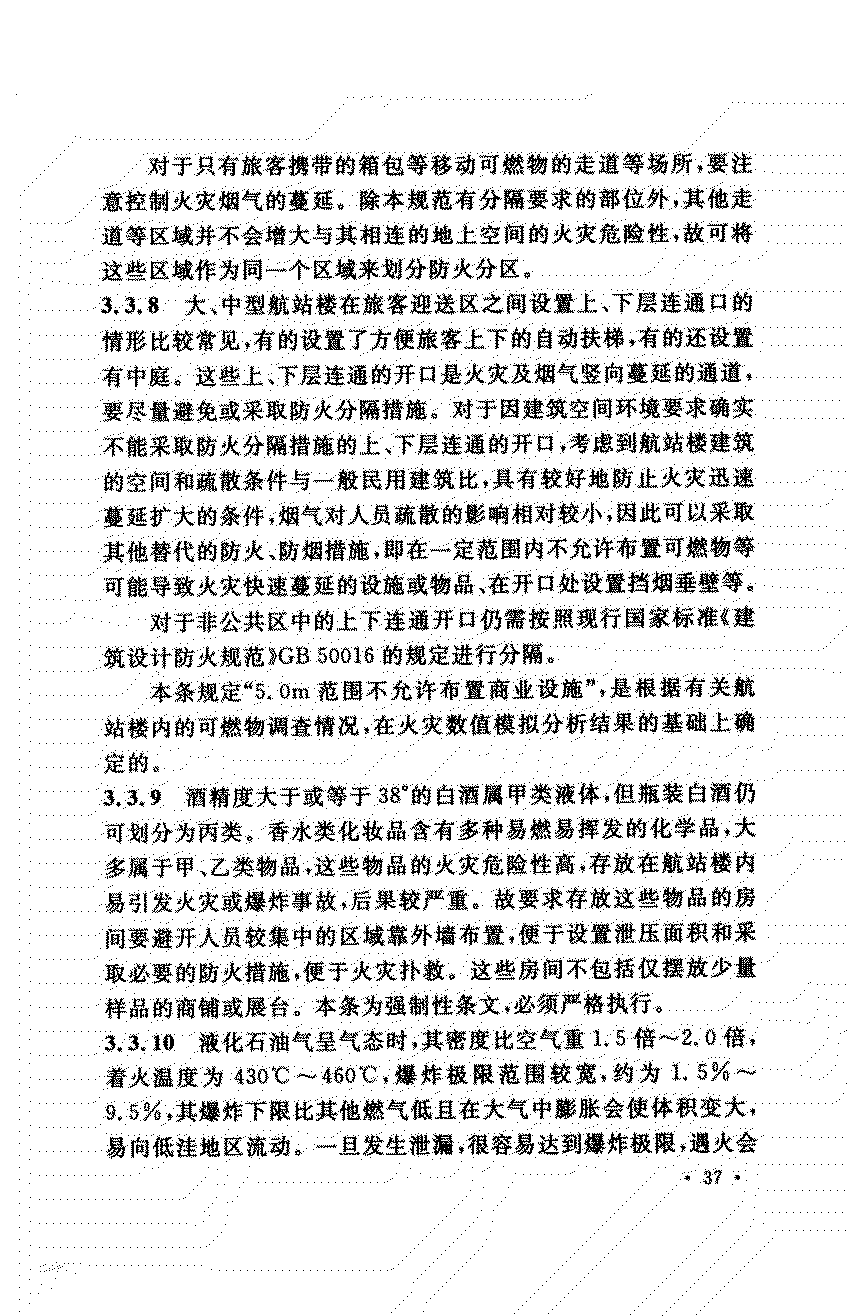 对于只有旅客携带的箱包等移动可燃物的走道等场所,要注
意控制火灾烟气的蔓延。除本规范有分隔要求的部位外,其他走
道等区域并不会增大与其相连的地上空间的火灾危险性,故可将
这些区域作为同一个区域来划分防火分区。
3.3.8 大、中型航站楼在旅客迎送区之间设置上、下层连通口的
情形比较常见,有的设置了方便旅客上下的自动扶梯,有的还设置
有中庭。这些上、下层连通的开口是火灾及烟气竖向蔓延的通道,
要尽量避免或采取防火分隔措施。对于因建筑空间环境要求确实
不能采取防火分隔措施的上、下层连通的开口,考虑到航站楼建筑
的空间和疏散条件与一般民用建筑比,具有较好地防止火灾迅速
蔓延扩大的条件,烟气对人员疏散的影响相对较小,因此可以采取
其他替代的防火、防烟措施,即在一定范围内不允许布置可燃物等
可能导致火灾快速蔓延的设施或物品、在开口处设置挡烟垂壁等。
对于非公共区中的上下连通开口仍需按照现行国家标准《建
筑设计防火规范》GB 50016 的规定进行分隔。
本条规定“5.0m 范围不允许布置商业设施”,是根据有关航
站楼内的可燃物调查情况,在火灾数值模拟分析结果的基础上确
定的。
3.3.9 酒精度大于或等于 38°的白酒属甲类液体,但瓶装白酒仍
可划分为丙类。香水类化妆品含有多种易燃易挥发的化学品,大
多属于甲、乙类物品,这些物品的火灾危险性高,存放在航站楼内
易引发火灾或爆炸事故,后果较严重。故要求存放这些物品的房
间要避开人员较集中的区域靠外墙布置,便于设置泄压面积和采
取必要的防火措施,便于火灾扑救。这些房间不包括仅摆放少量
样品的商铺或展台。本条为强制性条文,必须严格执行。
3.3.10 液化石油气呈气态时,其密度比空气重 1.5 倍~2.0 倍,
着火温度为 430℃~460℃,爆炸极限范围较宽,约为 1.5%~
9.5%,其爆炸下限比其他燃气低且在大气中膨胀会使体积变大,
易向低洼地区流动。一旦发生泄漏,很容易达到爆炸极限,遇火会
· 37 ·